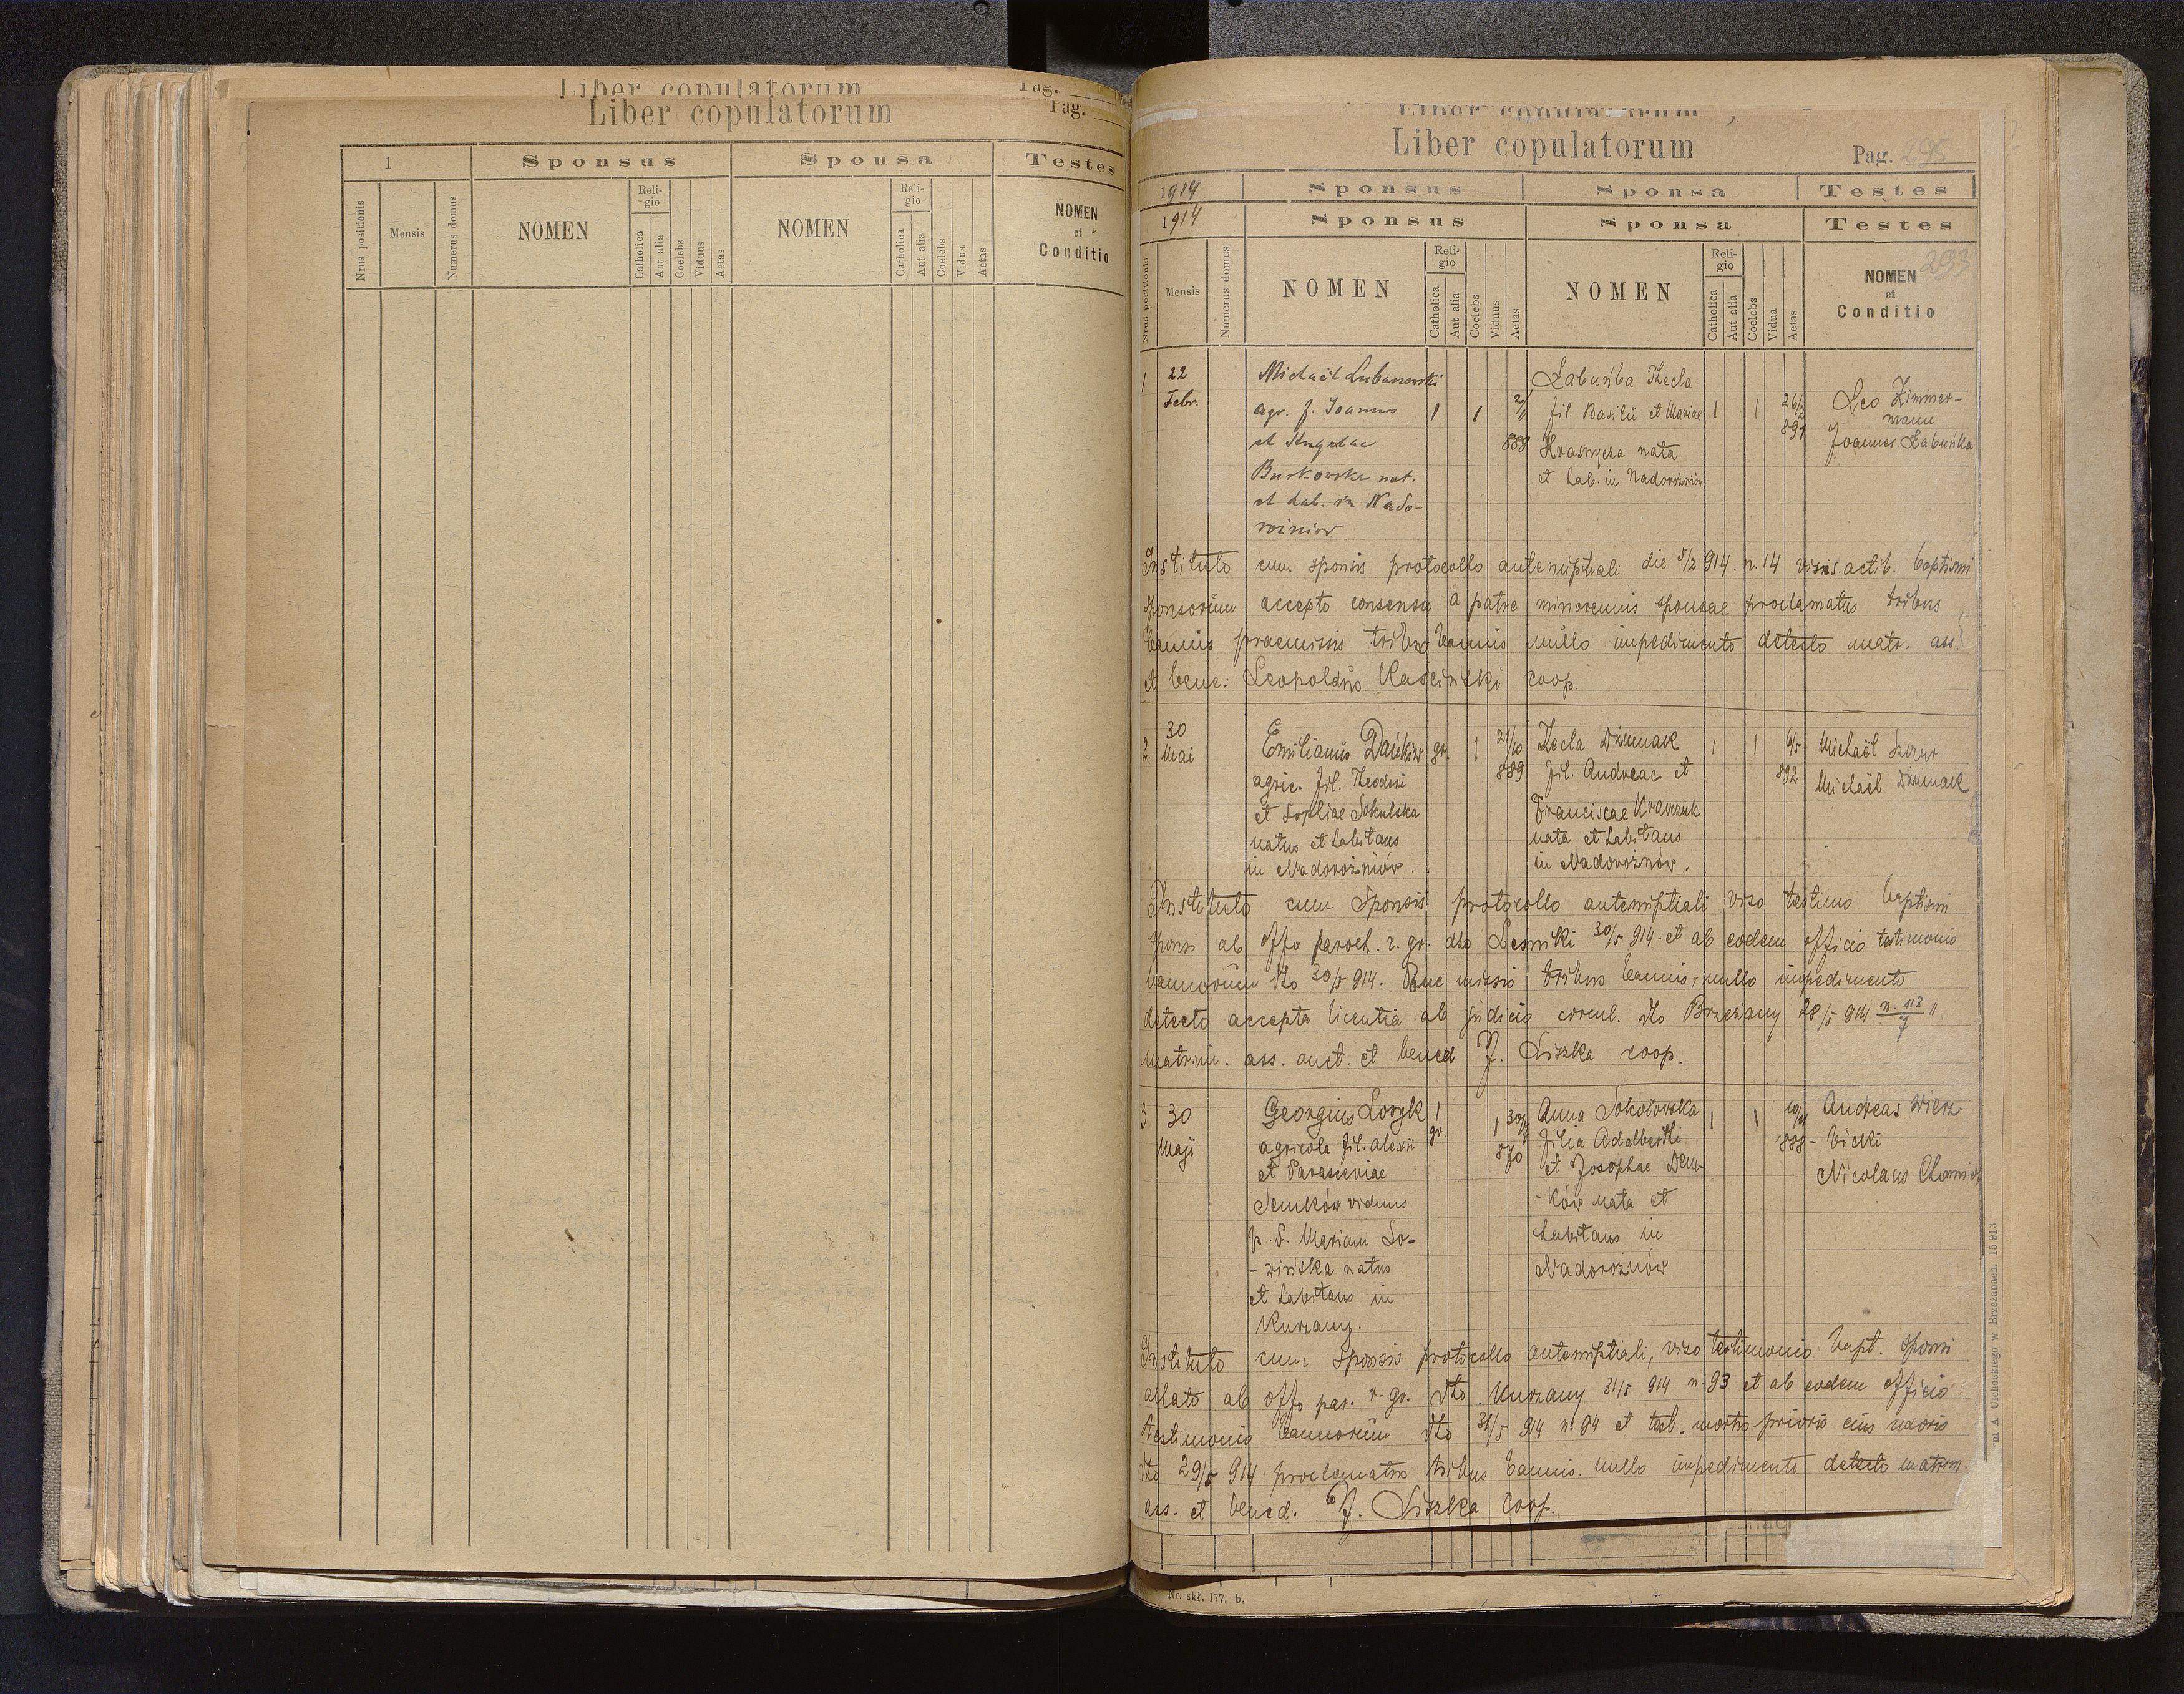 Liber copulatorum
Pag.
Liber copulatorum
Pag.
1
Sponsus
Sponsa
Testes
Nrus positionis
Mensis
Numerus domus
NOMEN
Reli-
gio
Catholica
Aut alia
Coelebs
Viduus
Aetas
NOMEN
Reli-
gio
Catholica
Aut alia
Coelebs
Vidua
Aetas
NOMEN
et
Conditio
Liber copulatorum
Liber copulatorum
Pag. 295
1914
Sponsus
Sponsa
Testes
1914
Sponsus
Sponsa
Testes
Nrus positionis
Mensis
Numerus domus
NOMEN
Reli-
gio
Catholica
Aut alia
Coelebs
Viduus
Aetas
NOMEN
Reli-
gio
Catholica
Aut alia
Coelebs
Vidua
Aetas
293
NOMEN
et
Conditio
1
22
Febr.
Michaël Lubaszewski
agr. f. Joannis
et Angelae
Burkowska nat.
et hab. in Nado-
rożniow
1
1
2/11
888
Łabuńka Thecla
fil. Basilii et Mariae
Krasnycza nata
et hab. in Nadorożniów
1
1
26/2
891
Leo Zimmer-
mann
Joannes Łabuńka
Instituto cum sponsis protocollo antenuptiali die 5/2 914. n. 14 visis. actib. baptismi
sponsorum accepto consensu a patre minorennis sponsae proclamatus tribus
bannis praemissis tribus bannis nullo impedimento detecto matr. ass.
et bene: Leopoldus Kaściński coop.
2.
30
Mai
Emilianus Dańków
agric. fil. Theodori
et Sophiae Sokulska
natus et habitans
in Nadorożniów.
gr.
1
21/10
889
Thecla Dżumak
fil. Andreae et
Franciscae Krawczuk
nata et habitans
in Nadorożnów.
1
1
6/5
892
Michaël
Michaël Dżumak
Instituto cum Sponsis protocollo antenuptiali viso testimo baptismi
sponsi ab offo paroch. r. gr. dto Lesniki 30/5 914. et ab eodem officio testimonio
bannorum dto 30/5 914. missis tribus bannis, nullo impedimento
detecto accepta licentia ab judicio circul. dto Brzeżany 28/5 914 n. 113/7
matrim. ass. aust. et bened J. Liszka coop.
3
30
Maji
Georgius Łozyk
agricola fil. Alexii
et Parasceviae
Semków viduus
p. d. Mariam Ło-
-zińska natus
et habitans in
Kurzany.
1
gr.
1
30/4
870
Anna Sokołowska
filia Adalberthi
et Josephae Dem-
-ków nata et
habitans in
Nadorożnów
1
1
10/11
888
Andreas Wierz-
-bicki
Nicolaus
Instituto cum Sponsis protocollo antenuptiali, viso testimonio bapt. sponsi
allato ab offo par. r. gr. dto. Kurzany 31/5 914 n. 93 et ab eodem officio
testimonio bannorum dto 31/5 914 n. 94 et test. mortis prioris eius uxoris
dto 29/5 914 proclamatis tribus bannis. nullo impedimento detecto matrim.
ass. et bened. J. Liszka coop.
A. Cichockiego w Brzeżanach. 15 913
Nr. skł. 177. b.